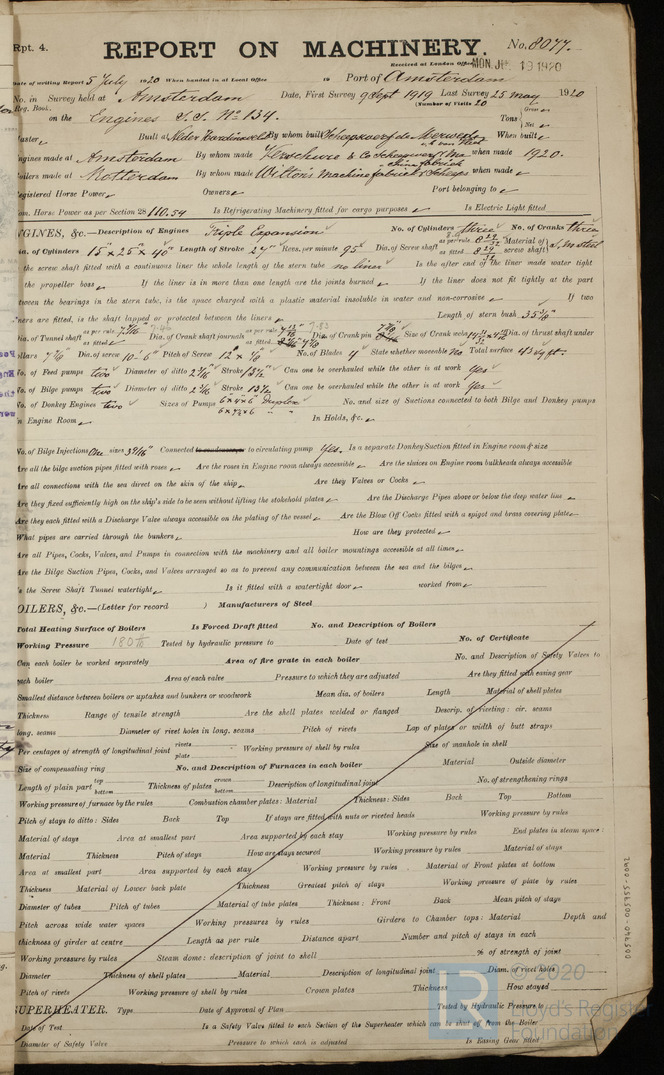 Rpt. 4.
REPORT ON MACHINERY.
No. 8077.
Received at London Office MON. 19 1920
Date of writing Report 5 July 1920 When handed in at Local Office 19 Port of Amsterdam
No. in Survey held at Amsterdam Date, First Survey 9 Sept 1919 Last Survey 25 may 1920
Reg. Book. (Number of Visits 20
on the Engines S.S. No 134. Tons Gross Net
Master Built at By whom built When built
Engines made at Amsterdam By whom made Verschure & Co when made 1920.
Boilers made at Rotterdam By whom made Wilton's Machinefabriek when made
Registered Horse Power Owners Port belonging to
Nom. Horse Power as per Section 28 110.34 Is Refrigerating Machinery fitted for cargo purposes Is Electric Light fitted
ENGINES, &c.—Description of Engines Triple Expansion No. of Cylinders three No. of Cranks three
Dia. of Cylinders 15" x 25" x 40" Length of Stroke 27" Revs. per minute 95 Dia. of Screw shaft as per rule as fitted Material of screw shaft S. m steel
Is the screw shaft fitted with a continuous liner the whole length of the stern tube no liner Is the after end of the liner made water tight
in the propeller boss If the liner is in more than one length are the joints burned If the liner does not fit tightly at the part
between the bearings in the stern tube, is the space charged with a plastic material insoluble in water and non-corrosive If two
liners are fitted, is the shaft lapped or protected between the liners Length of stern bush
Dia. of Tunnel shaft as per rule as fitted Dia. of Crank shaft journals as per rule as fitted Dia. of Crank pin Size of Crank webs Dia. of thrust shaft under
collars Dia. of screw 10'-6" Pitch of Screw No. of Blades 4 State whether moveable No Total surface 43 sq ft.
No. of Feed pumps two Diameter of ditto Stroke Can one be overhauled while the other is at work Yes
No. of Bilge pumps two Diameter of ditto Stroke Can one be overhauled while the other is at work Yes
No. of Donkey Engines two Sizes of Pumps Duplex No. and size of Suctions connected to both Bilge and Donkey pumps
In Engine Room In Holds, &c.
No. of Bilge Injections One sizes Connected to condenser to circulating pump Yes. Is a separate Donkey Suction fitted in Engine room & size
Are all the bilge suction pipes fitted with roses Are the roses in Engine room always accessible Are the sluices on Engine room bulkheads always accessible
Are all connections with the sea direct on the skin of the ship Are they Valves or Cocks
Are they fixed sufficiently high on the ship's side to be seen without lifting the stokehold plates Are the Discharge Pipes above or below the deep water line
Are they each fitted with a Discharge Valve always accessible on the plating of the vessel Are the Blow Off Cocks fitted with a spigot and brass covering plate
What pipes are carried through the bunkers How are they protected
Are all Pipes, Cocks, Valves, and Pumps in connection with the machinery and all boiler mountings accessible at all times
Are the Bilge Suction Pipes, Cocks, and Valves arranged so as to prevent any communication between the sea and the bilges
Is the Screw Shaft Tunnel watertight Is it fitted with a watertight door worked from
BOILERS, &c.—(Letter for record ) Manufacturers of Steel
Total Heating Surface of Boilers Is Forced Draft fitted No. and Description of Boilers
Working Pressure 180 lb Tested by hydraulic pressure to Date of test No. of Certificate
Can each boiler be worked separately Area of fire grate in each boiler No. and Description of Safety Valves to
each boiler Area of each valve Pressure to which they are adjusted Are they fitted with easing gear
Smallest distance between boilers or uptakes and bunkers or woodwork Mean dia. of boilers Length Material of shell plates
Thickness Range of tensile strength Are the shell plates welded or flanged Descrip. of riveting: cir. seams
long. seams Diameter of rivet holes in long. seams Pitch of rivets Lap of plates or width of butt straps
Per centages of strength of longitudinal joint rivets plate Working pressure of shell by rules Size of manhole in shell
Size of compensating ring No. and Description of Furnaces in each boiler Material Outside diameter
Length of plain part top bottom Thickness of plates crown bottom Description of longitudinal joint No. of strengthening rings
Working pressure of furnace by the rules Combustion chamber plates: Material Thickness: Sides Back Top Bottom
Pitch of stays to ditto: Sides Back Top If stays are fitted with nuts or riveted heads Working pressure by rules
Material of stays Area at smallest part Area supported by each stay Working pressure by rules End plates in steam space:
Material Thickness Pitch of stays How are stays secured Working pressure by rules Material of stays
Area at smallest part Area supported by each stay Working pressure by rules Material of Front plates at bottom
Thickness Material of Lower back plate Thickness Greatest pitch of stays Working pressure of plate by rules
Diameter of tubes Pitch of tubes Material of tube plates Thickness: Front Back Mean pitch of stays
Pitch across wide water spaces Working pressures by rules Girders to Chamber tops: Material Depth and
thickness of girder at centre Length as per rule Distance apart Number and pitch of stays in each
Working pressure by rules Steam dome: description of joint to shell % of strength of joint
Diameter Thickness of shell plates Material Description of longitudinal joint Diam. of rivet holes
Pitch of rivets Working pressure of shell by rules Crown plates Thickness How stayed
SUPERHEATER. Type Date of Approval of Plan Tested by Hydraulic Pressure to
Date of Test Is a Safety Valve fitted to each Section of the Superheater which can be shut off from the Boiler
Diameter of Safety Valve Pressure to which each is adjusted Is Easing Gear fitted
© 2020
Lloyd's Register
Foundation